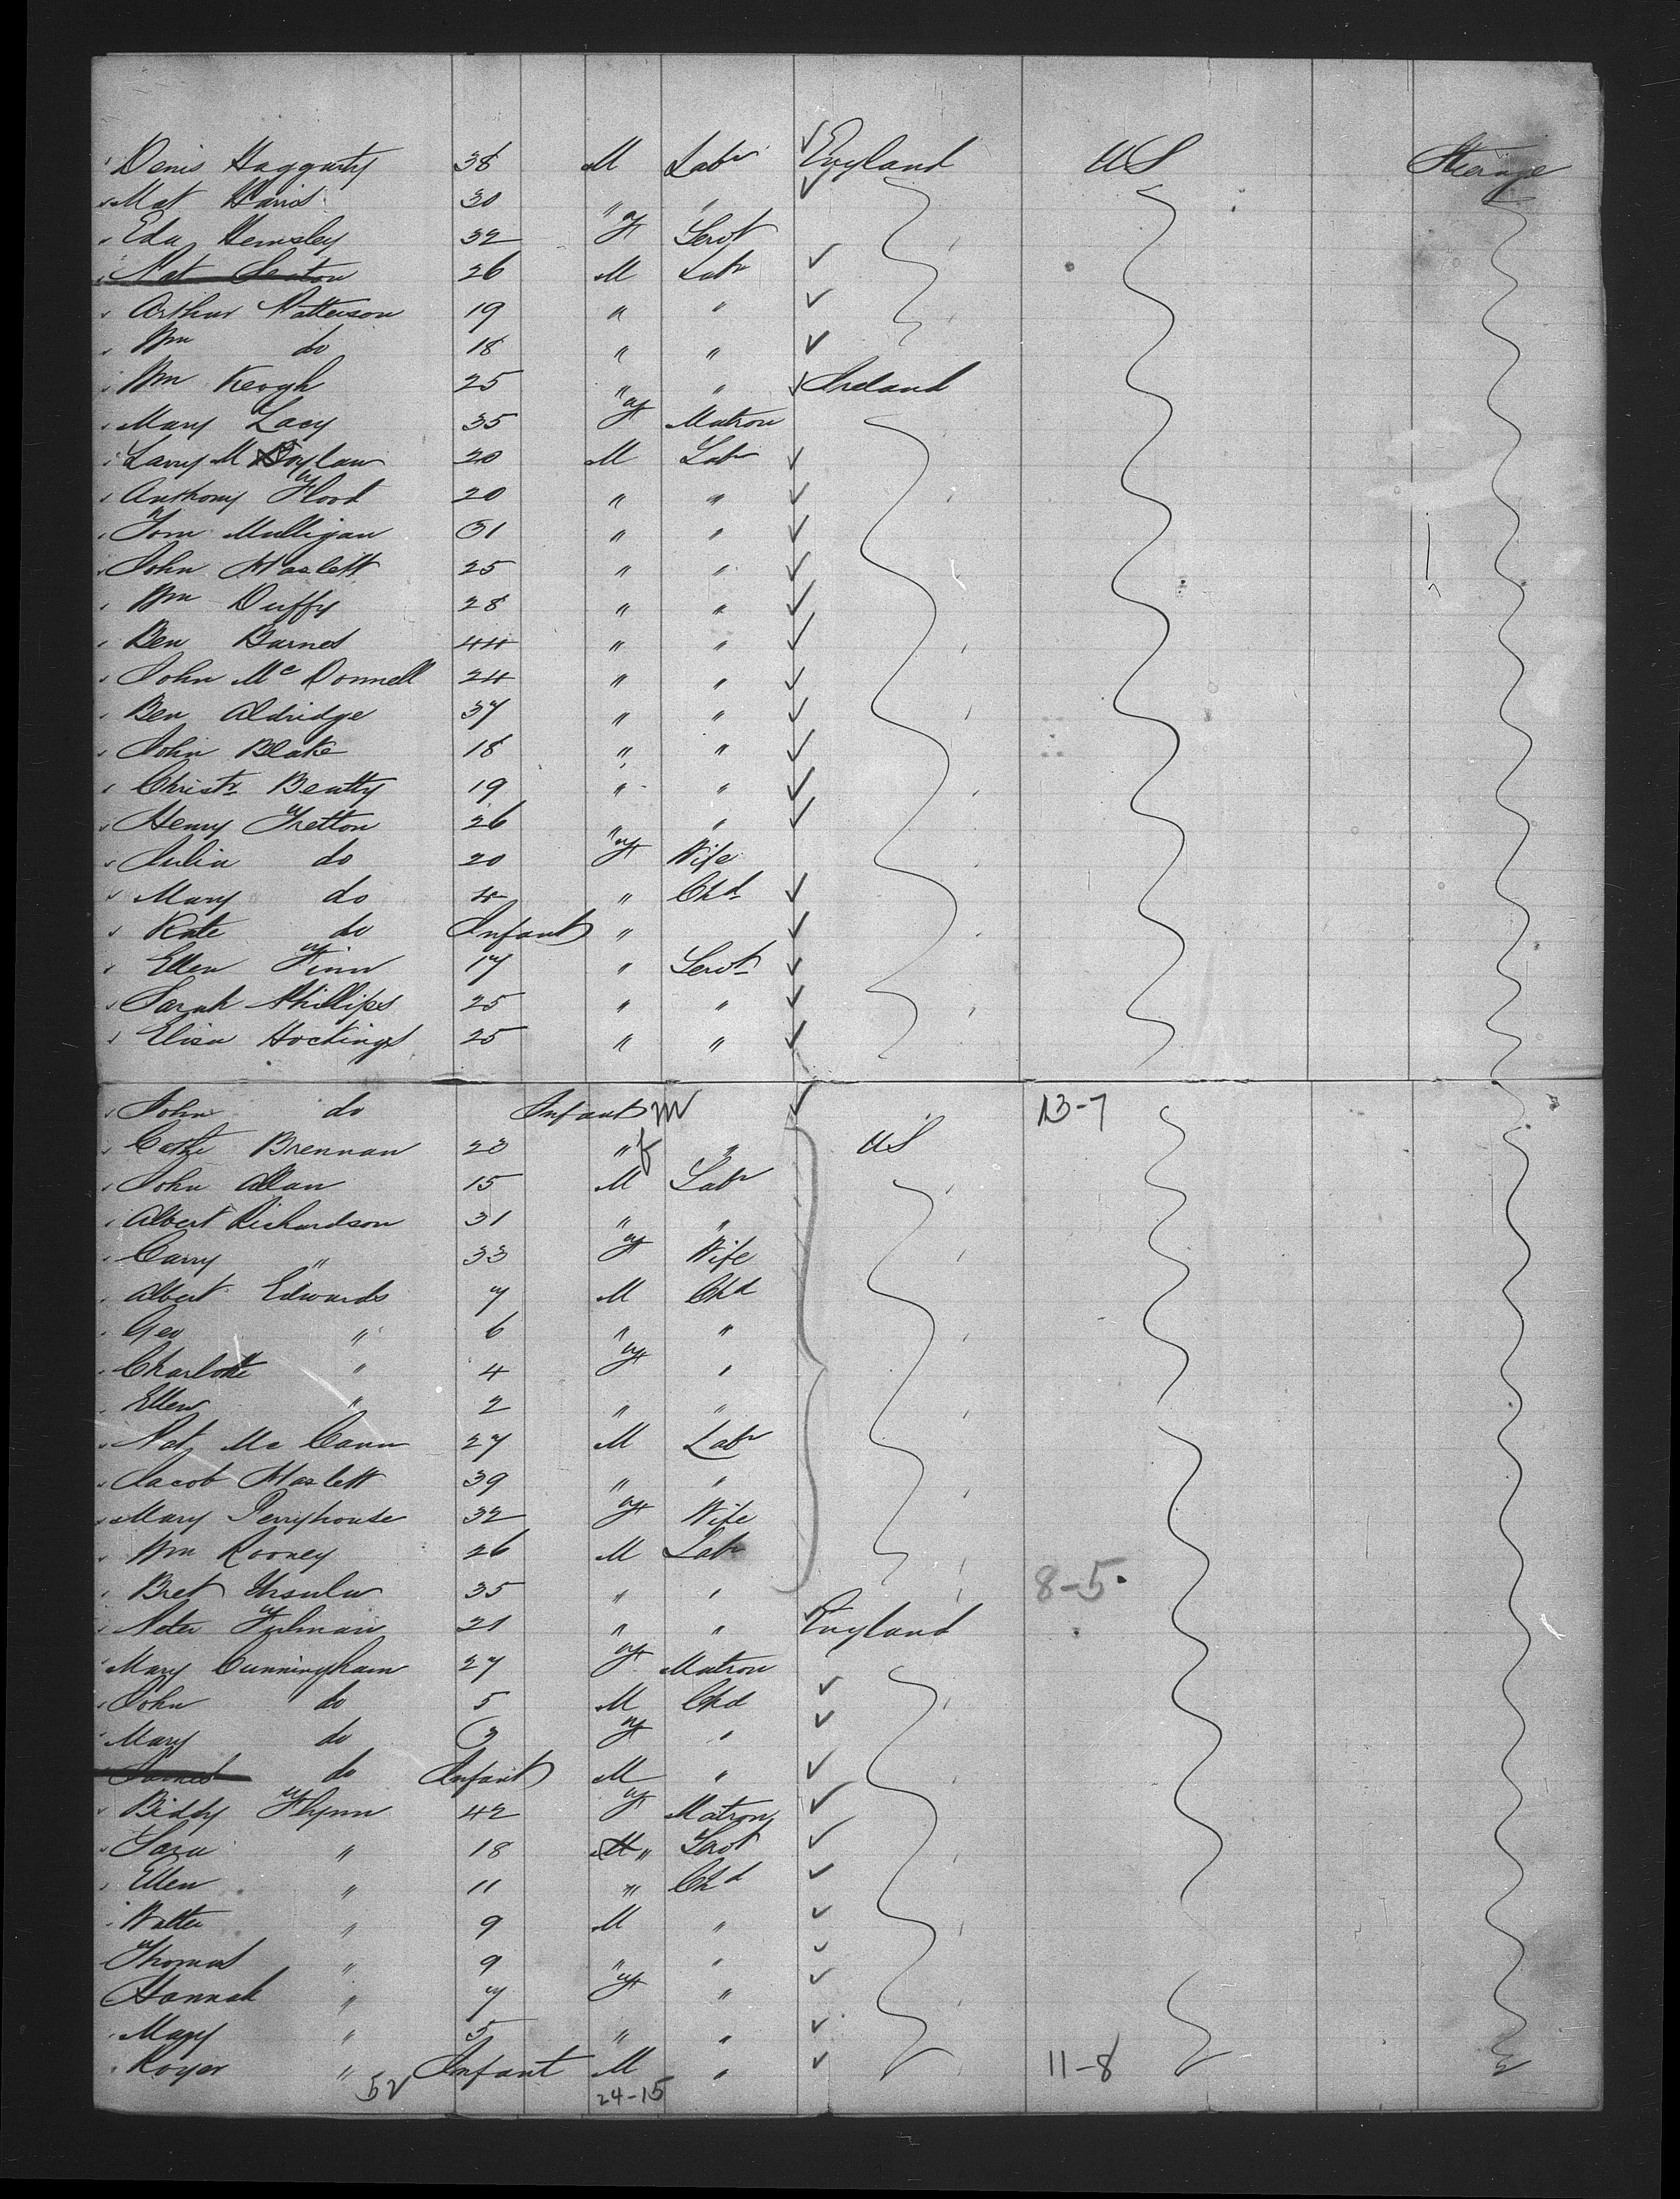 Denis Haggarty 38 M Labr England US Steerage
Mat Harris 30 " "
Eda Hemsley 32 F Servt
Pat Sexton 26 M Labr
Arthur Patterson 19 " "
Wm do 18 " "
Wm Keogh 25 " " Ireland
Mary Lacy 35 F Matron
Larry M Boylan 20 M Labr
Anthony Flood 20 " "
Tom Mulligan 31 " "
John Haslett 25 " "
Wm Duffy 28 " "
Ben Barnes 44 " "
John Mc Donnell 24 " "
Ben Aldridge 37 " "
John Blake 18 " "
Christr Beatty 19 " "
Henry Fretton 26 " "
Julia do 20 F Wife
Mary do 4 " Chd
Kate do Infant "
Ellen Finn 17 " Servt
Sarah Phillips 25 " "
Eliza Hockings 25 " "
John do Infant M 13-7
Cathe Brennan 23 " f " US
John Allan 15 M Labr
Albert Richardson 31 " "
Carry " 33 F Wife
Albert Edwards 7 M Chd
Geo " 6 " "
Charlotte " 4 F "
Ellen " 2 " "
Pat Mc Cann 27 M Labr
Jacob Haslett 39 " "
Mary Perryhouse 32 F Wife
Wm Rooney 26 M Labr
Bret Ursula 35 " " 8-5
Peter 21 " " England
Mary Cunningham 27 F Matron
John do 5 M Chd
Mary do 3 F "
James do Infant M "
Biddy Flynn 42 F Matron
Sara " 18 M " Servt
Ellen " 11 " Chd
Walter " 9 M "
Thomas " 9 " "
Hannah " 7 F "
Mary " 5 " "
Roger " Infant M " 11-8
52 24-15